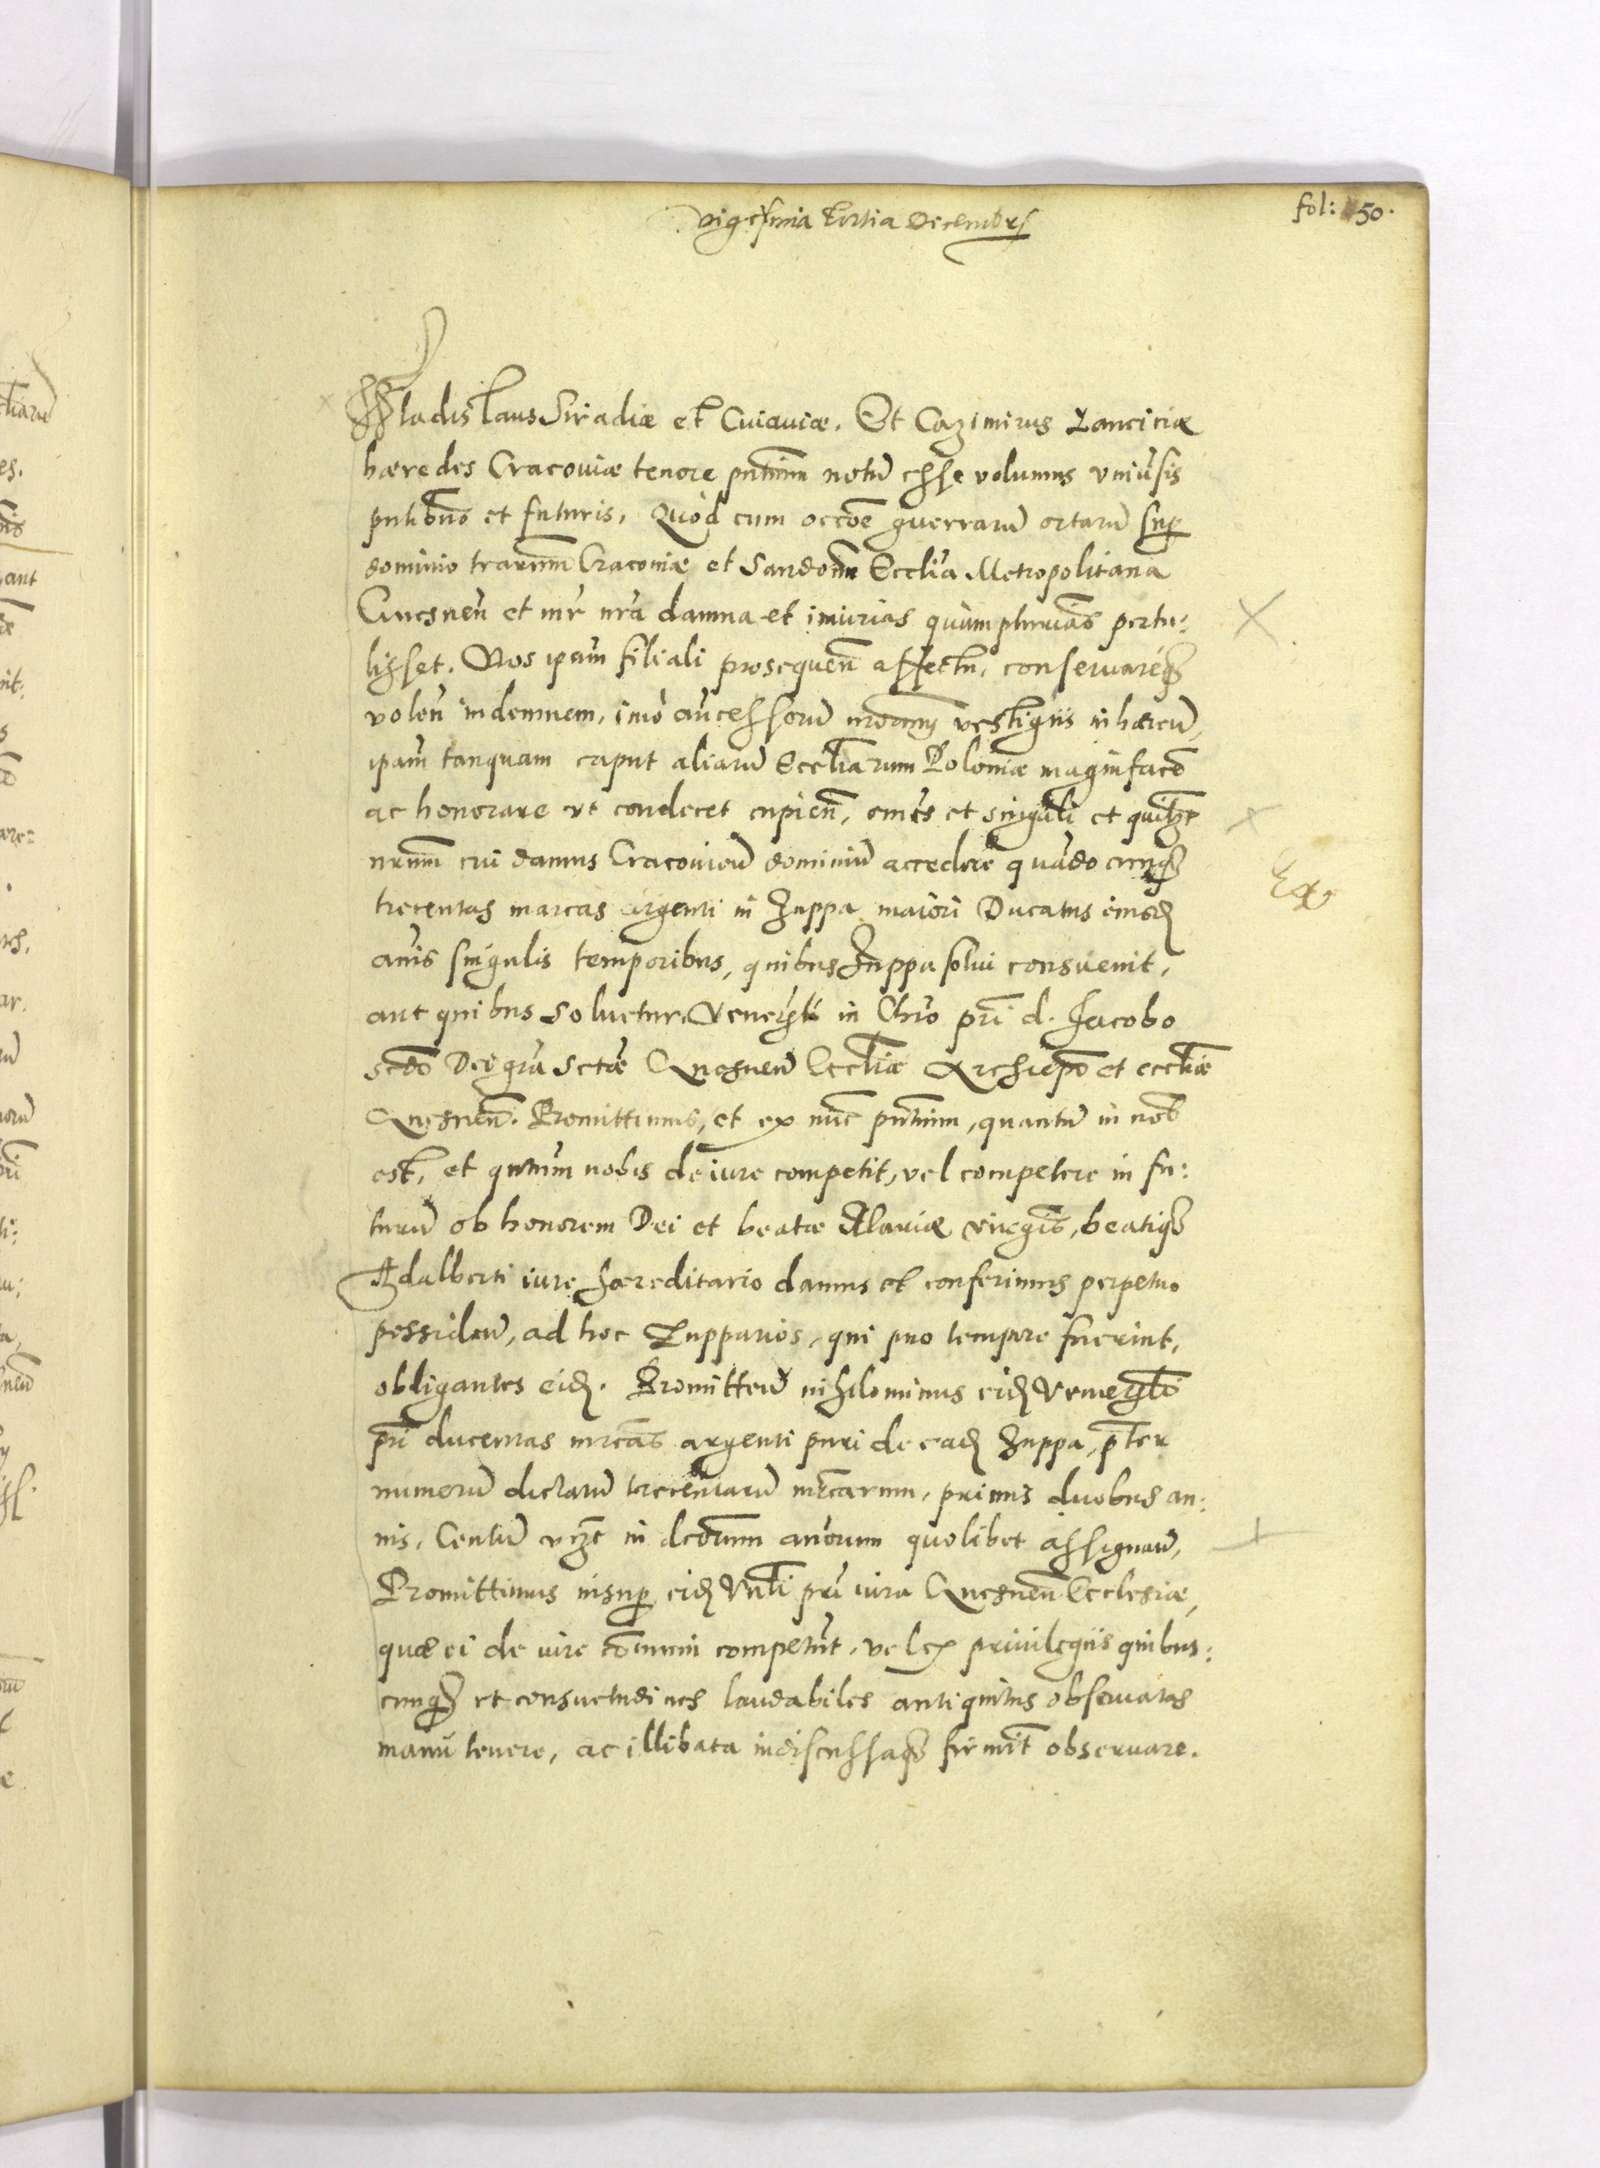 Vigesima tertia Decembris
fol: 50.
Wladislaus Siradiæ et Cuiauiæ. Et Cazimirus Lanciciæ
hæredes Cracouiæ tenore pntium notū esse volumus vniuʼsis
pntibus et futuris, Quòd cum occōe guerrarū ortarū sup
dominio trarum Cracouiæ et Sandom Ecclia Metropolitana
Gnesneñ et mr nrā damna et iniurias quàm plurimas pertu:
lisset. Nos ipam filiali prosequeñ affectu, conseruareq
voleñ indemnem, imò ancessorū nrorum vestigiis inhæreñ,
ipam tanquam caput aliarū Eccliarum Poloniæ magnificare
ac honorare vt condecet cupieñ, omes et singuli et quilzt
nrum cui damus Cracouieñ dominiū accedere quādocunq
trecentas marcas argenti in Zuppa maiori Ducatus eiusd
annis singulis temporibus, quibus Zuppa solui consueuit,
aut quibus soluetur. Venerabli in Chro pri d. Jacobo
scdo Dei gra sctæ Gnesneñ Eccliæ Archiepo et eccliæ
Gnesneñ. Promittimus, et ex nūc pntium, quantū in nob
est, et qntum nobis de iure competit, vel competere in fu:
turū ob honorem Dei et beatæ Mariæ virginis, beatiq
Adalberti iure hæreditario damus et conferimus perpetuo
possideñ, ad hoc Zupparios, qui pro tempore fuerint,
obligantes eid. Promitteñ nihilominus eid Venerabli
pri ducentas mrcas argenti puri de ead Zuppa, pter
numerū dictarū trecentarū mrcarum, primis duobus an:
nis, Centū vizt in dctorum annorum quolibet assignañ,
Promittimus insup eid Vnbli pri iura Gnesneñ Ecclesiæ,
quæ ei de iure cōmuni competūt, vel ex priuilegiis quibus:
cunq et consuetudines laudabiles antiquitus obseruatas
manū tenere, ac illibata indiscussaq firmit obseruare.